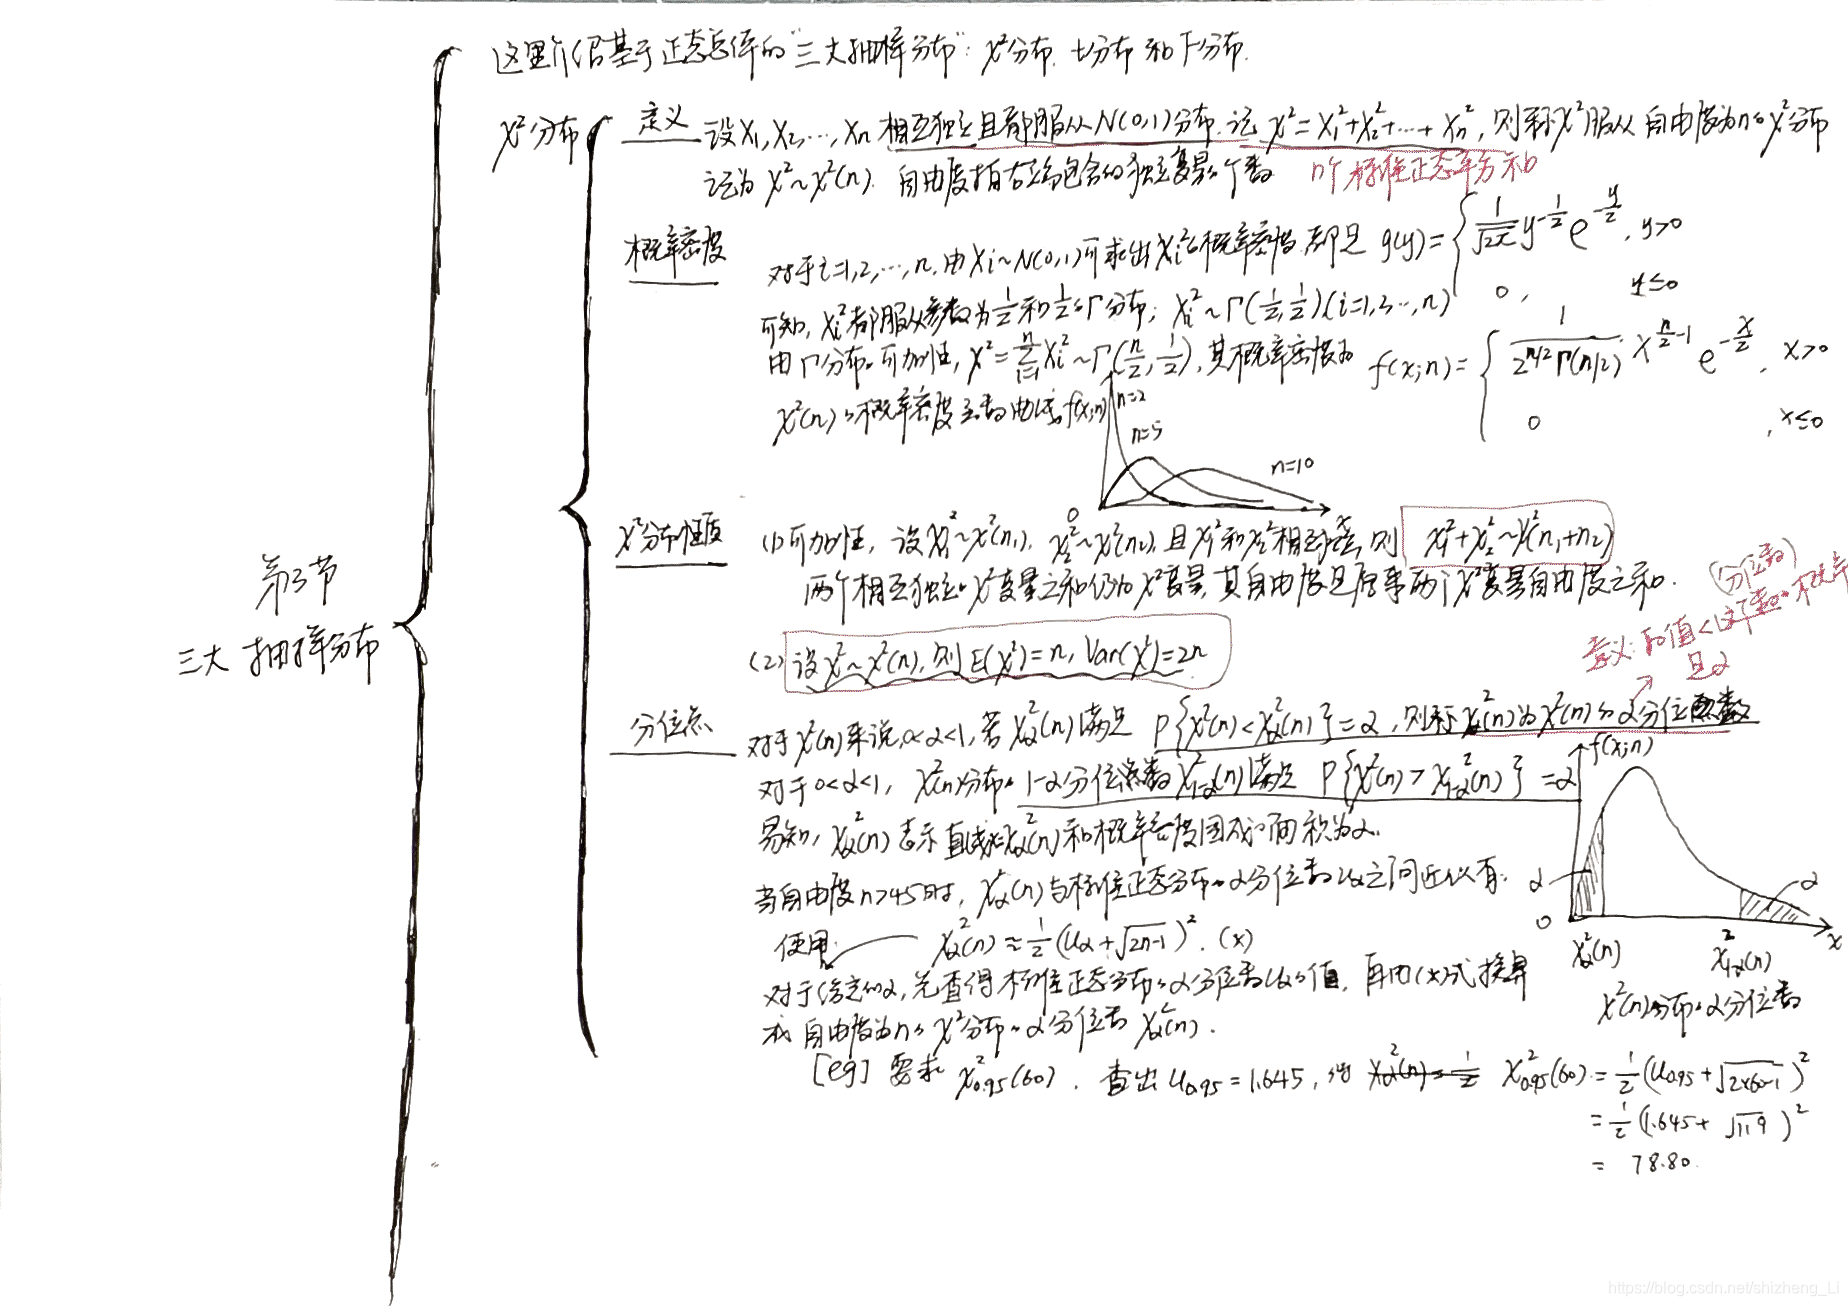 这里介绍基于正态总体的"三大抽样分布": χ²分布. t分布 和 F分布.
χ²分布
定义
设X₁,X₂,…,Xn 相互独立且都服从N(0,1)分布. 记 χ²=X₁²+X₂²+…+Xn², 则称χ²服从 自由度为n的χ²分布
记为 χ²~χ²(n). 自由度指右端包含的独立变量个数 n个标准正态平方和
概率密度
对于i=1,2,…,n, 由Xi~N(0,1)可求出Xi²的概率密度都是 g(y)={ 1/√2π y^(-1/2) e^(-y/2), y>0
0, y≤0
可知, Xi²都服从参数为1/2和1/2的Γ分布; Xi²~Γ(1/2,1/2)(i=1,2…,n)
由Γ分布的可加性, χ²=∑(i=1→n)Xi²~Γ(n/2,1/2), 其概率密度为 f(x;n)={ 1/(2^(n/2)Γ(n/2)) x^(n/2-1) e^(-x/2), x>0
0 , x≤0
χ²(n)的概率密度函数曲线 f(x;n)
n=2
n=5
n=10
0
χ²分布性质
(1)可加性, 设χ₁²~χ²(n₁), χ₂²~χ²(n₂), 且χ₁²和χ₂²相互独立, 则 χ₁²+χ₂²~χ²(n₁+n₂)
两个相互独立的χ²变量之和仍为χ²变量, 其自由度是原来两个χ²变量自由度之和.
第3节
三大抽样分布
(2) 设χ²~χ²(n), 则E(χ²)=n, Var(χ²)=2n
(分位数)
意义: 的值<这个数的
是α
分位点
对于χ²(n)来说, 0<α<1, 若χα²(n)满足 P{χ²(n)<χα²(n)}=α, 则称χα²(n)为χ²(n)的α分位数
对于0<α<1, χ²(n)分布的1-α分位点数χ²₁₋α(n)满足 P{χ²(n)>χ²₁₋α(n)}=α
易知, χα²(n)表示直线x=χα²(n)和概率密度围成的面积为α.
当自由度n>45时, χα²(n)与标准正态分布的α分位数uα之间近似有:
使用:
χα²(n)≈1/2(uα+√2n-1)². (*)
对于给定的α, 先查得标准正态分布的α分位数uα的值, 再由(*)式换算
成 自由度为n的χ²分布的α分位数 χα²(n).
f(x;n)
α
α
0
x
χα²(n)
χ²₁₋α(n)
χ²(n)分布的α分位数
[eg] 要求 χ²₀.₉₅(60). 查出 u₀.₉₅=1.645, χα²(n)=1/2 χ²₀.₉₅(60)=1/2(u₀.₉₅+√2×60-1)²
=1/2(1.645+√119)²
= 78.80.
https://blog.csdn.net/shizheng_Li